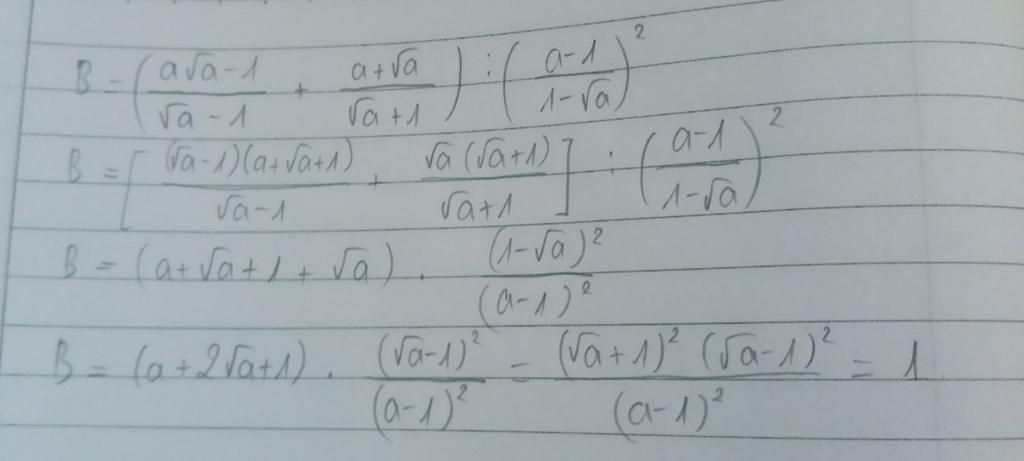 B = ( (a√a - 1)/(√a - 1) + (a + √a)/(√a + 1) ) : ( (a - 1)/(1 - √a) )²
B = [ (√a - 1)(a + √a + 1)/(√a - 1) + √a(√a + 1)/(√a + 1) ] : ( (a - 1)/(1 - √a) )²
B = (a + √a + 1 + √a) . (1 - √a)²/(a - 1)²
B = (a + 2√a + 1) . (√a - 1)²/(a - 1)² = (√a + 1)² (√a - 1)²/(a - 1)² = 1